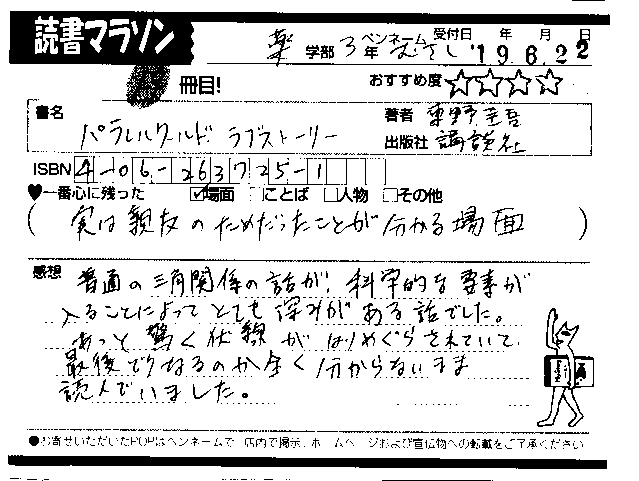 読書マラソン
薬 学部 3年 ペンネーム むさし 受付日 '19年 6月 22日
冊目! おすすめ度 ☆☆☆☆
書名 パラレルワールド ラブストーリー
著者 東野圭吾
出版社 講談社
ISBN 4-06-263725-1
♥一番心に残った ☑場面 □ことば □人物 □その他
(実は親友のためだったことが分かる場面)
感想 普通の三角関係の話が、科学的な要素が
入ることによってとても深みがある話でした。
あっと驚く伏線がはりめぐらされていて
最後どうなるのか全く分からないまま
読んでいました。
●お寄せいただいたPOPはペンネームで、店内で掲示、ホームページおよび宣伝物への転載をご了承ください